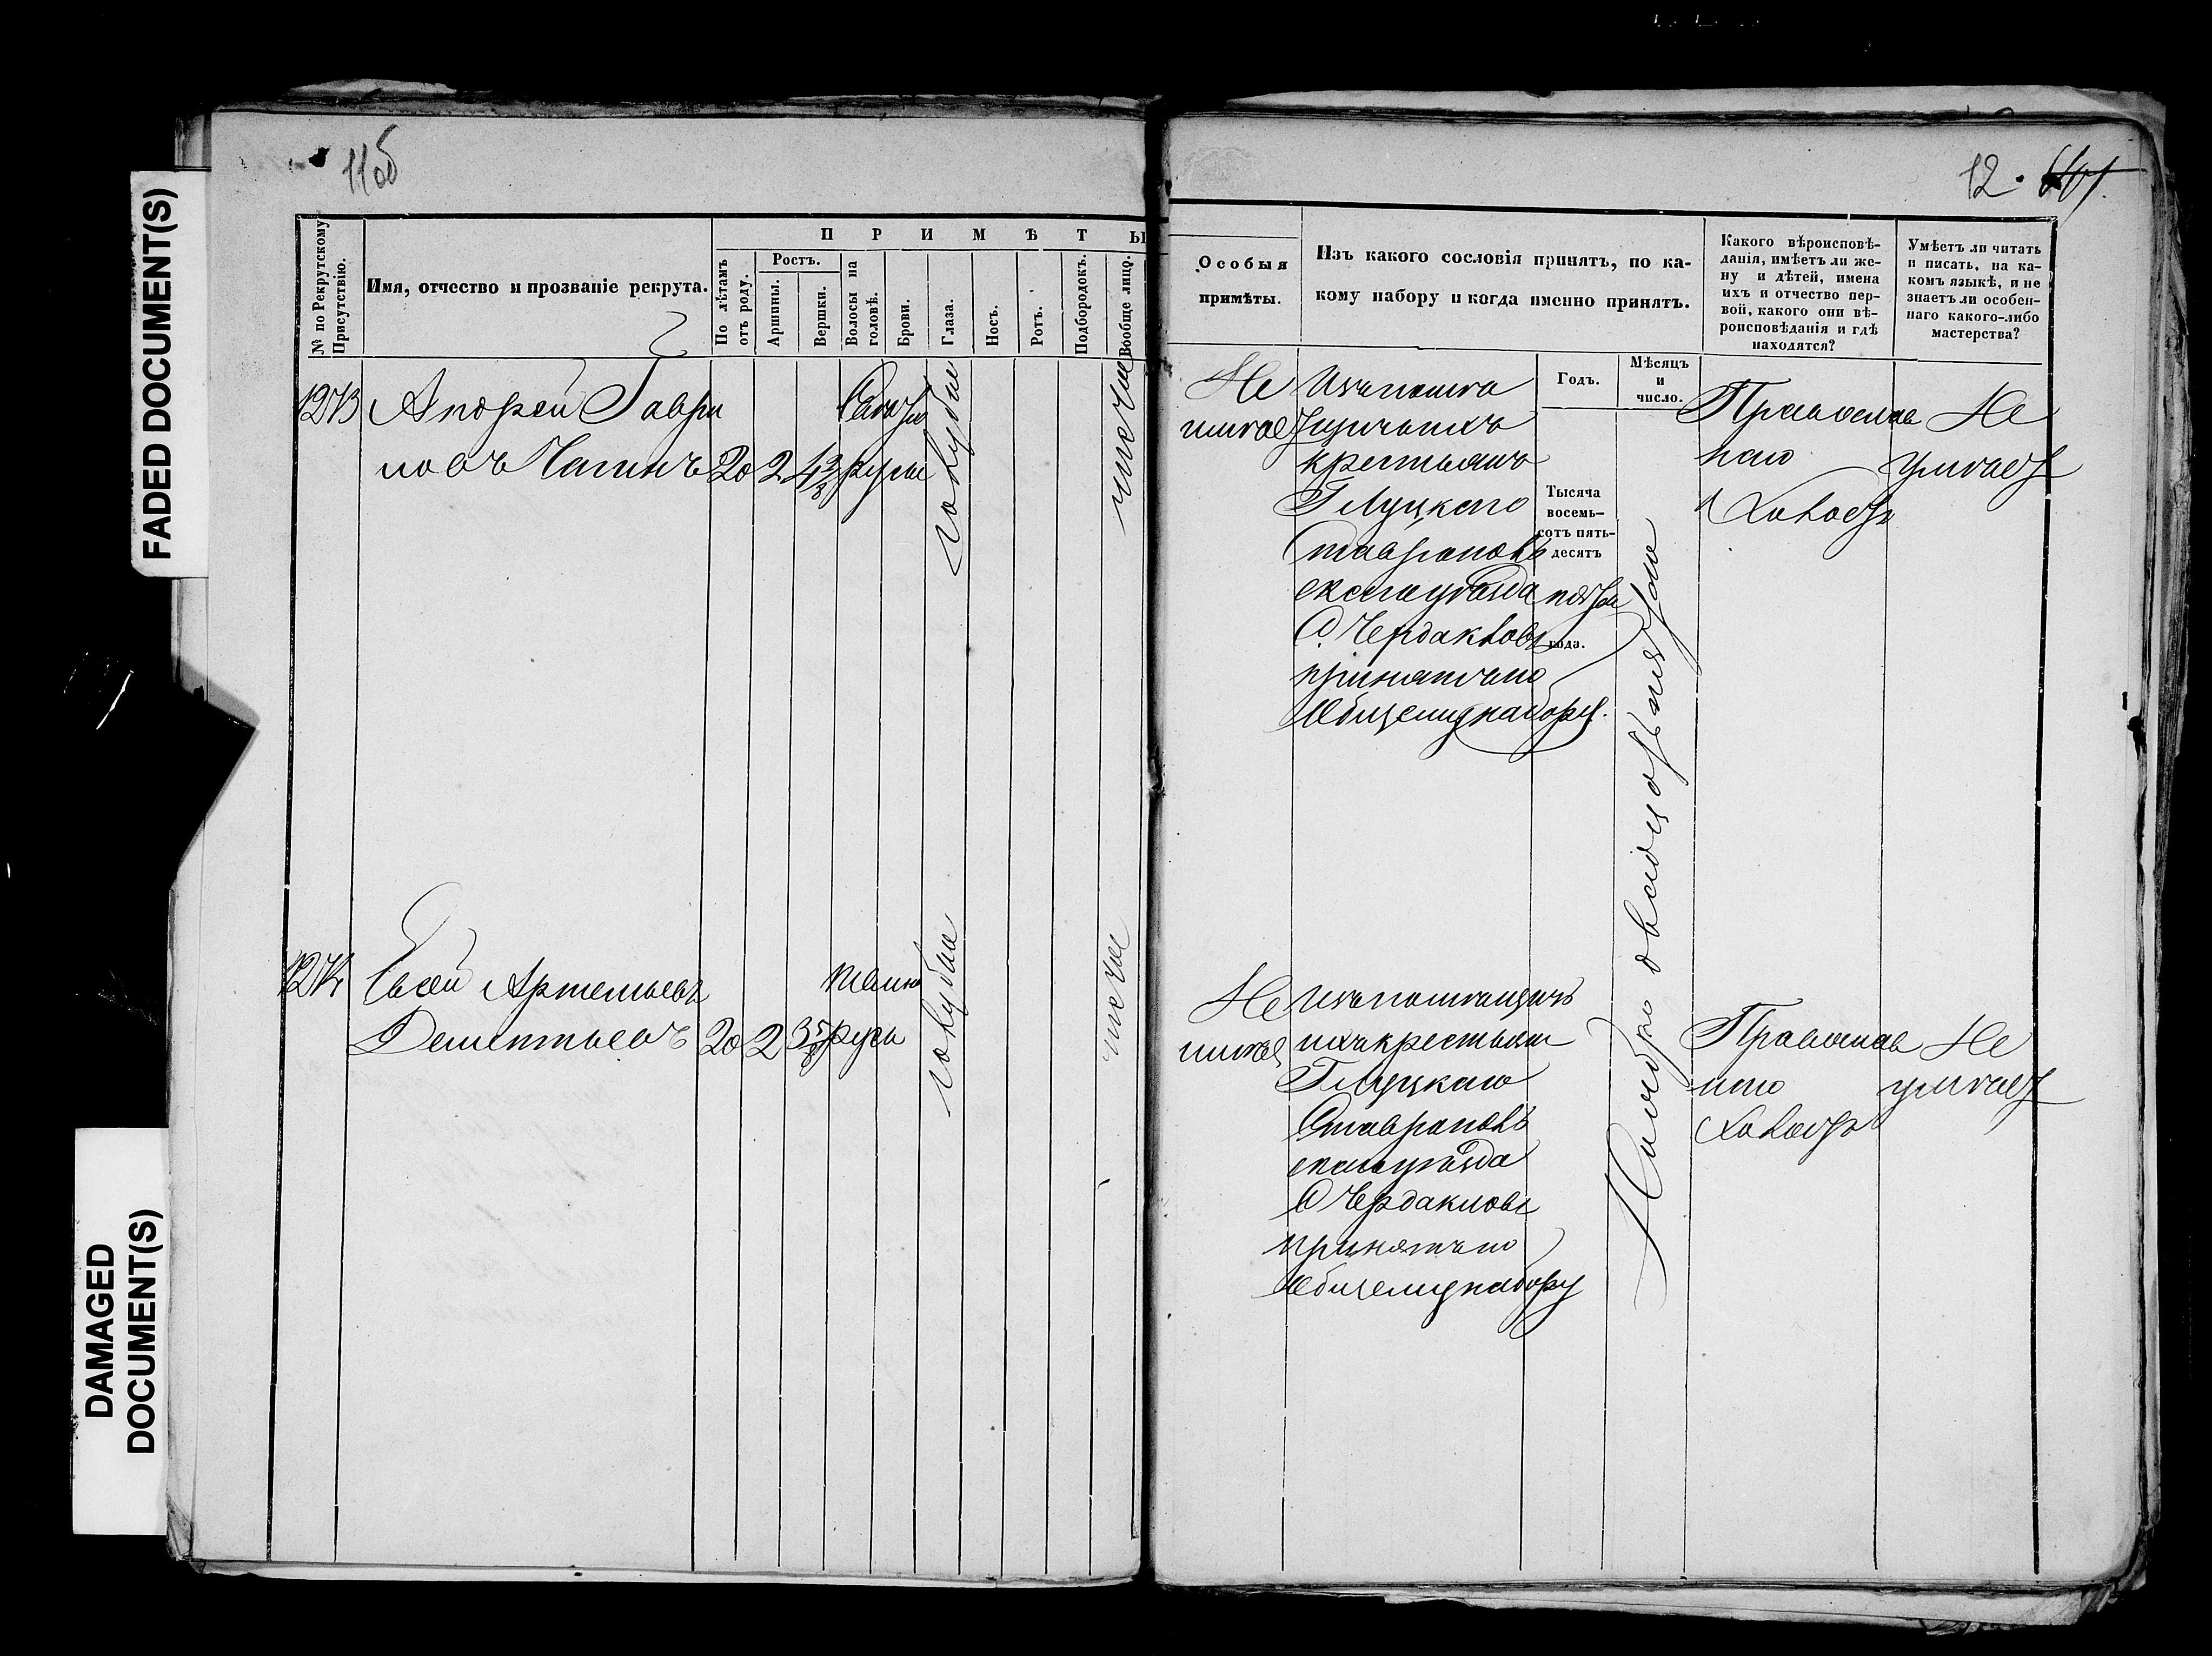 FADED DOCUMENT(S)
DAMAGED
DOCUMENT(S)
11об
№ по Рекрутскому
Присутствію.
Имя, отчество и прозваніе рекрута.
ПРИМѢТЫ
По лѣтамъ
отъ роду.
Ростъ.
Аршины.
Вершки.
Волосы на
головѣ.
Брови.
Глаза.
Носъ.
Ротъ.
Подбородокъ.
Вообще лицо.
1273
Андрей Гаври
ловъ Чагинъ 20 2 4 3/8 русы
голубые
чистое
1274
Евсей Артемьевъ темно
Дементьевъ 20 2 3 5/8 русы
голубые
чистое
12.
Особыя
примѣты.
Изъ какого сословія принятъ, по ка-
кому набору и когда именно принятъ.
Годъ.
Мѣсяцъ
и
число.
Какого вѣроисповѣ-
данія, имѣетъ ли же-
ну и дѣтей, имена
ихъ и отчество пер-
вой, какого они вѣ-
роисповѣданія и гдѣ
находятся?
Умѣетъ ли читать
и писать, на ка-
комъ языкѣ, и не
знаетъ ли особен-
наго какого-либо
мастерства?
Не
имѣет
Изъ помѣ
щичьихъ
крестьянъ
Г Луцкаго
Ставрополь
скаго уѣзда
С Чердаковъ
принятъ по
Общему набору.
Тысяча
восемь-
сотъ пять-
десятъ
года.
Ноября
Православ
наго
Холостъ
Не
умѣетъ
Не
имѣе
Изъ помѣщичь
ихъ крестьян
Г Луцкаго
Ставрополь
скаго уѣзда
С Чердаковъ
принятъ по
Общему набору
Православ
наго
Холостъ
Не
умѣетъ